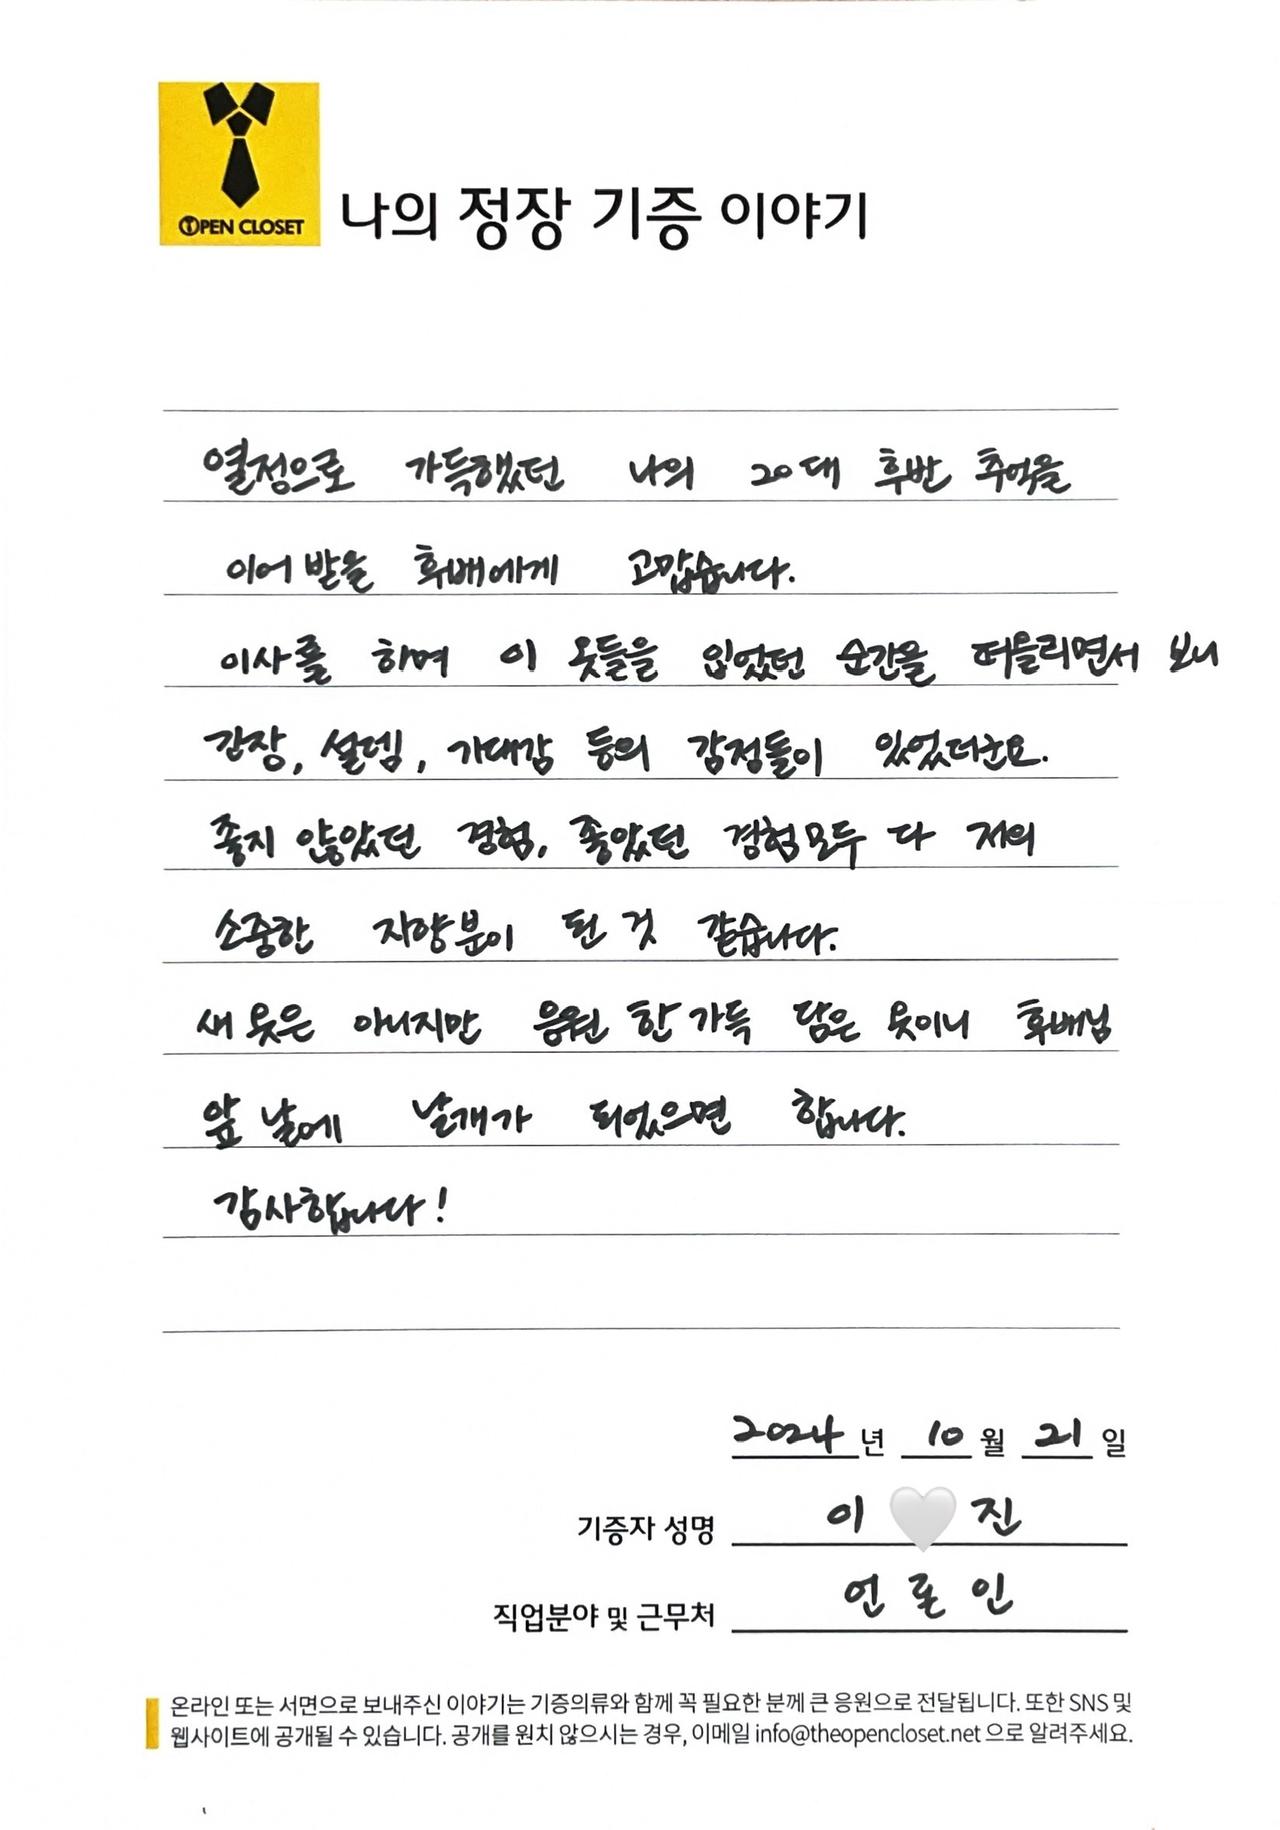 OPEN CLOSET
나의 정장 기증 이야기
열정으로 가득했던 나의 20대 후반 추억을
이어 받을 후배에게 고맙습니다.
이사를 하며 이 옷들을 입었던 순간을 떠올리면서 보니
긴장, 설렘, 기대감 등의 감정들이 있었더군요.
좋지 않았던 경험, 좋았던 경험 모두 다 저의
소중한 자양분이 된 것 같습니다.
새 옷은 아니지만 응원 한가득 담은 옷이니 후배님
앞 날에 날개가 되었으면 합니다.
감사합니다!
2024년 10월 21일
기증자 성명 이 🤍 진
직업분야 및 근무처 언론인
온라인 또는 서면으로 보내주신 이야기는 기증의류와 함께 꼭 필요한 분께 큰 응원으로 전달됩니다. 또한 SNS 및
웹사이트에 공개될 수 있습니다. 공개를 원치 않으시는 경우, 이메일 info@theopencloset.net 으로 알려주세요.